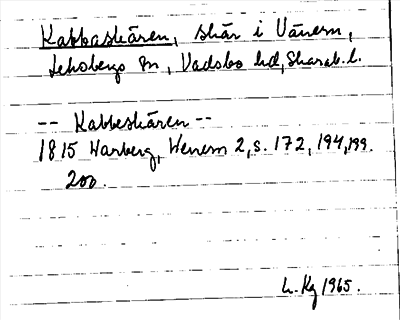 Kabbaskären, skär i Vänern,
Lekebergs sn, Vadsbo hd, Skarab. l.
-- Kabbeskären --
1815 Warberg, Wenern 2, s. 172, 194, 199.
200.
L. Kg 1965.